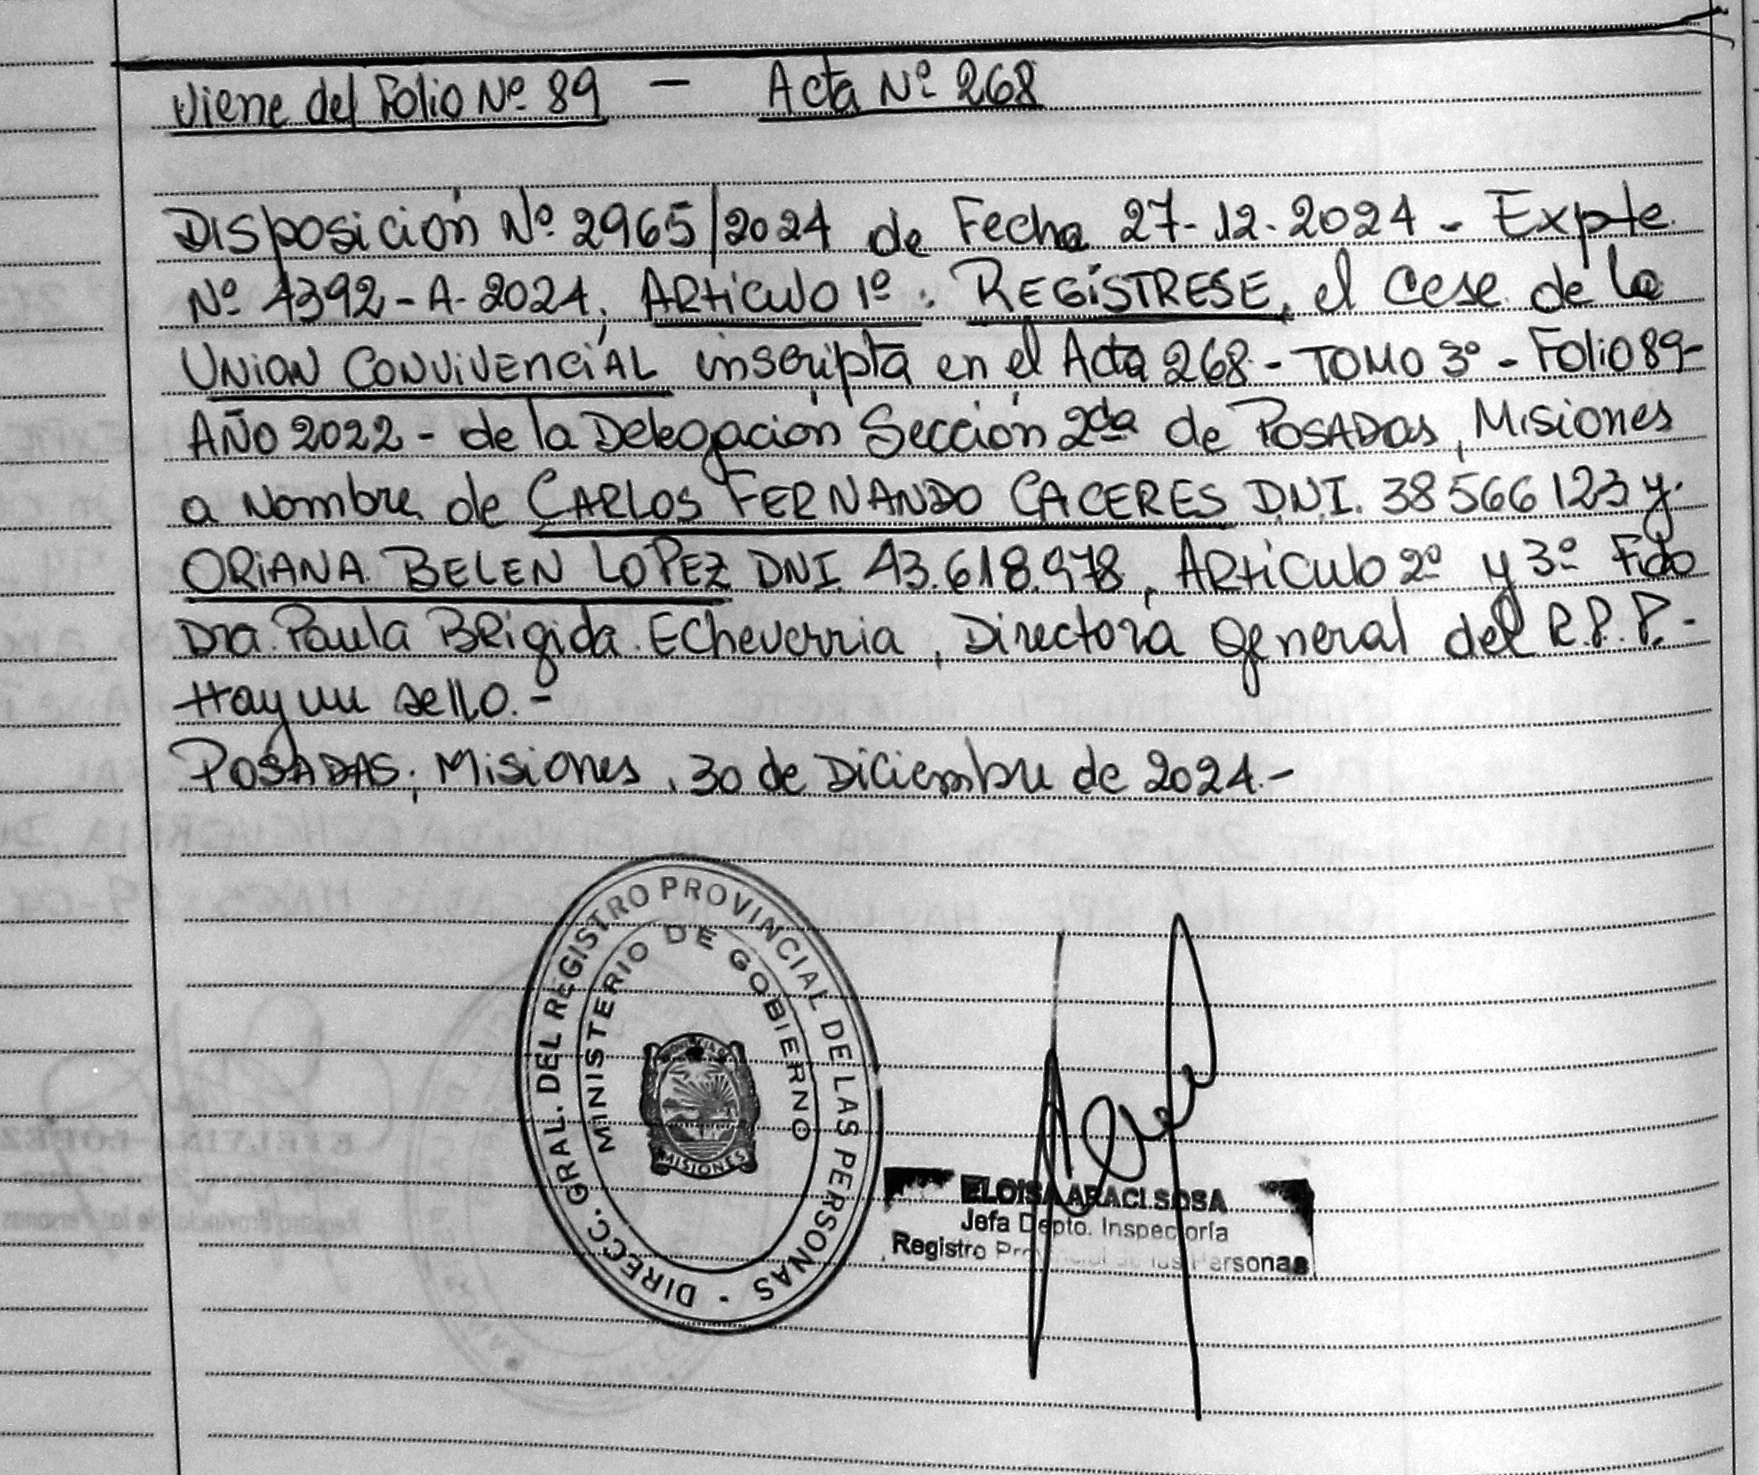 Viene del Folio Nº 89 - Acta Nº 268
Disposición Nº 2965/2024 de Fecha 27-12-2024 - Expte
Nº 4392-A-2024, Artículo 1º: REGÍSTRESE, el cese de la
UNION CONVIVENCIAL inscripta en el Acta 268 - TOMO 3º - Folio 89-
AÑO 2022 - de la Delegación Sección 2da de POSADAS, Misiones
a Nombre de CARLOS FERNANDO CACERES D.N.I. 38 566 123 y.
ORIANA BELEN LOPEZ DNI 43.618.978, Artículo 2º y 3º Fido
Dra. Paula Brigida Echeverria, Directora general del R.P.P.-
Hay un sello.-
POSADAS, Misiones, 30 de Diciembre de 2024.-
DIRECC. GRAL. DEL REGISTRO PROVINCIAL DE LAS PERSONAS -
MINISTERIO DE GOBIERNO
MISIONES
ELOISA ARACI SOSA
Jefa Depto. Inspectoría
Registro Provincial de las Personas